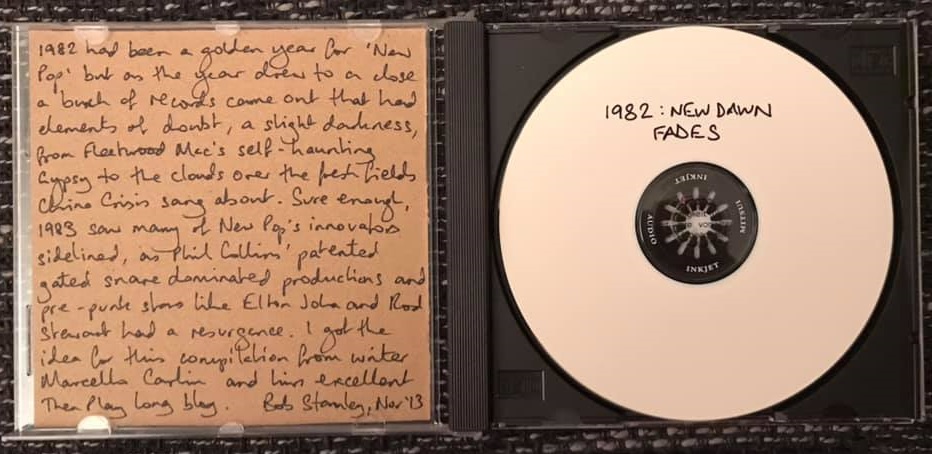 1982 had been a golden year for 'New
Pop' but as the year drew to a close
a bunch of records came out that had
elements of doubt, a slight darkness,
from Fleetwood Mac's self-haunting
Gypsy to the clouds over the fresh fields
China Crisis sang about. Sure enough,
1983 saw many of New Pop's innovators
sidelined, as Phil Collins' patented
gated snare dominated productions and
pre-punk stars like Elton John and Rod
Stewart had a resurgence. I got the
idea for this compilation from writer
Marcello Carlin and his excellent
Then Play Long blog. Bob Stanley, Nov '13
1982: NEW DAWN
FADES
INKJET
AUDIO
MITSUI
INKJET